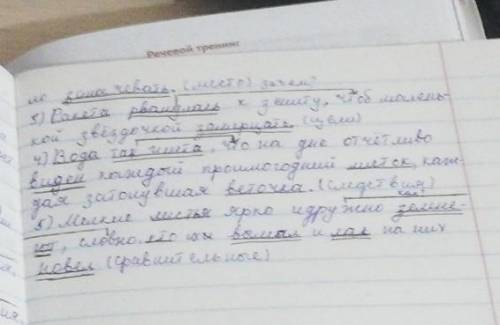 Речевой тренинг
но заночевать. (место) зачем?
3) Ракета рванулась к зениту, чтоб малень-
кой звёздочкой замерцать. (цели)
4) Вода так чиста, что на дне отчётливо
виден каждый прошлогодний листок, каж-
дая затонувшая веточка. (следствия)
5) Мелкие листья ярко и дружно зелене-
ют, словно кто их вымыл и лак на них
навёл (сравнительные)